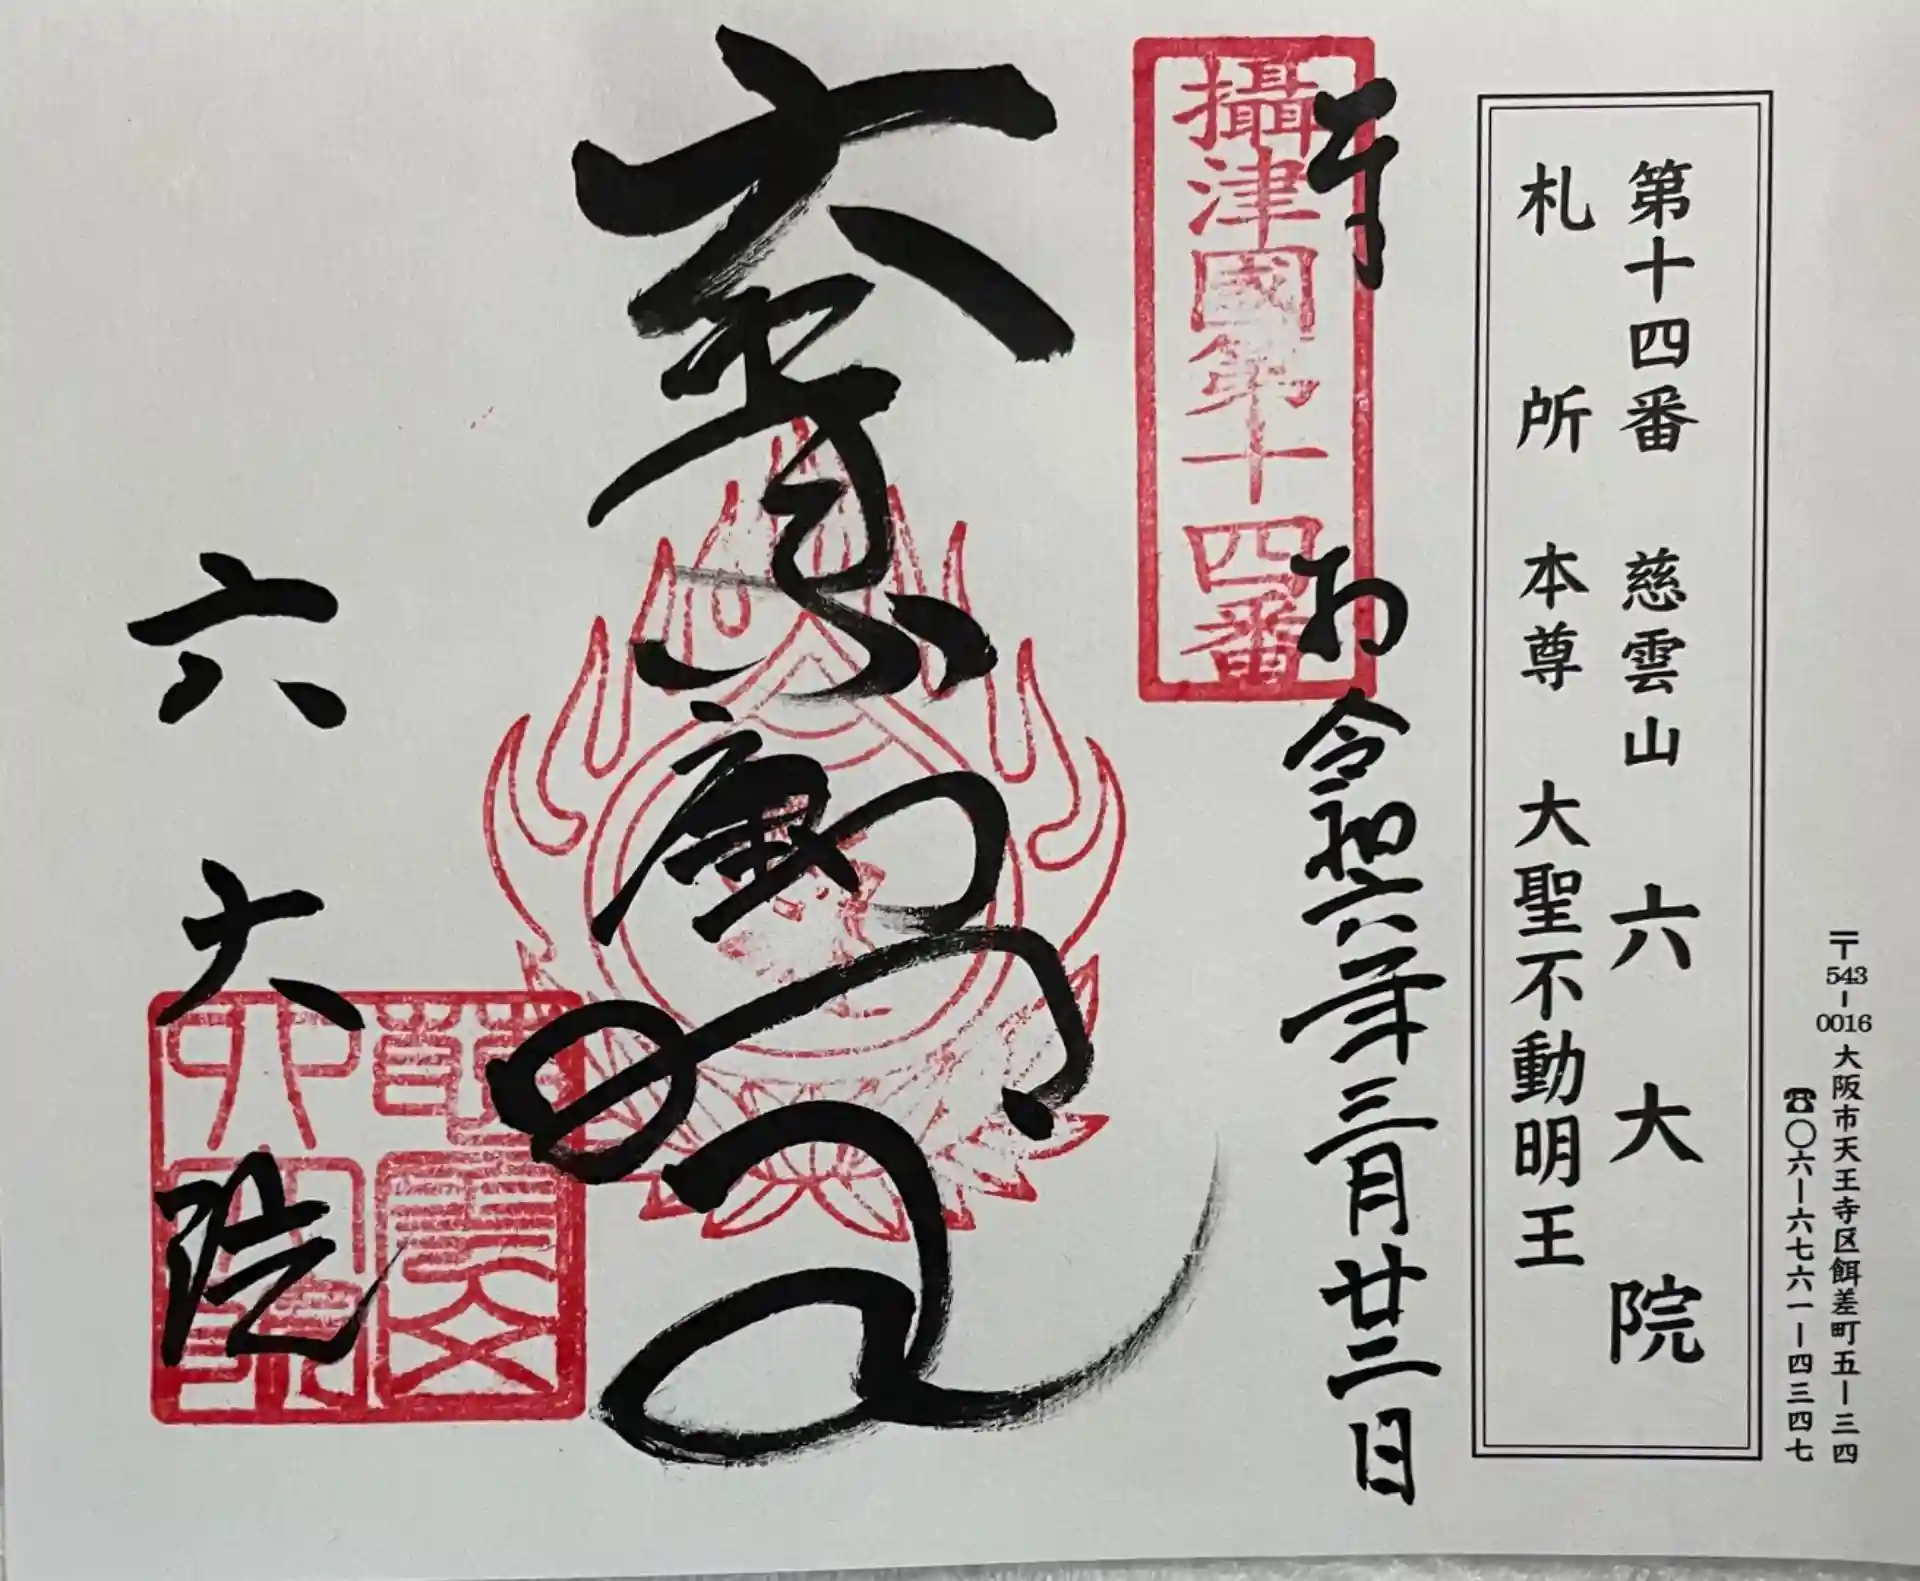 〒543-0016 大阪市天王寺区餌差町五ー三四
☎〇六ー六七六一ー四三四七
第十四番 慈雲山 六大院
札所本尊 大聖不動明王
奉 お 令和六年三月廿二日
攝津國第十四番
六大院